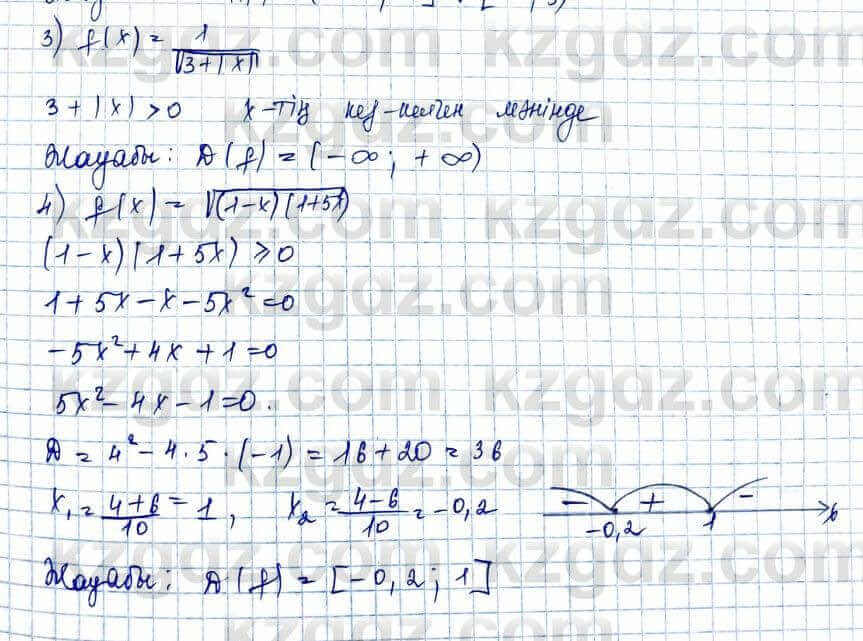 3) f(x) = 1/√(3+|x|)
3 + |x| > 0 x-тің кез-келген мәнінде
Жауабы: D(f) = (-∞; +∞)
4) f(x) = √((1-x)(1+5x))
(1-x)(1+5x) ≥ 0
1 + 5x - x - 5x² = 0
-5x² + 4x + 1 = 0
5x² - 4x - 1 = 0.
D = 4² - 4·5·(-1) = 16 + 20 = 36
x₁ = (4+6)/10 = 1, x₂ = (4-6)/10 = -0,2
- + -
-0,2 1 x
Жауабы: D(f) = [-0,2; 1]
kzgdz.com